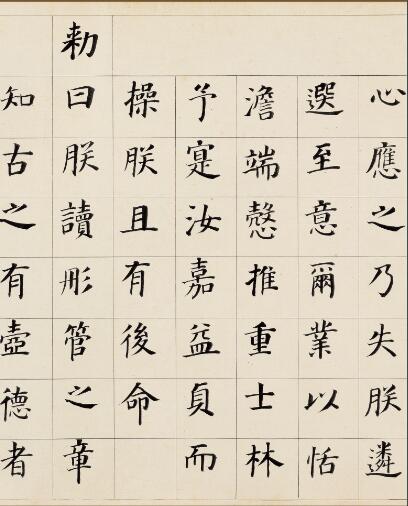 心應之乃失朕遴
選至意爾業以恬
澹端慤推重士林
予寔汝嘉益貞而
操朕且有後命
勅曰朕讀彤管之章
知古之有壼德者